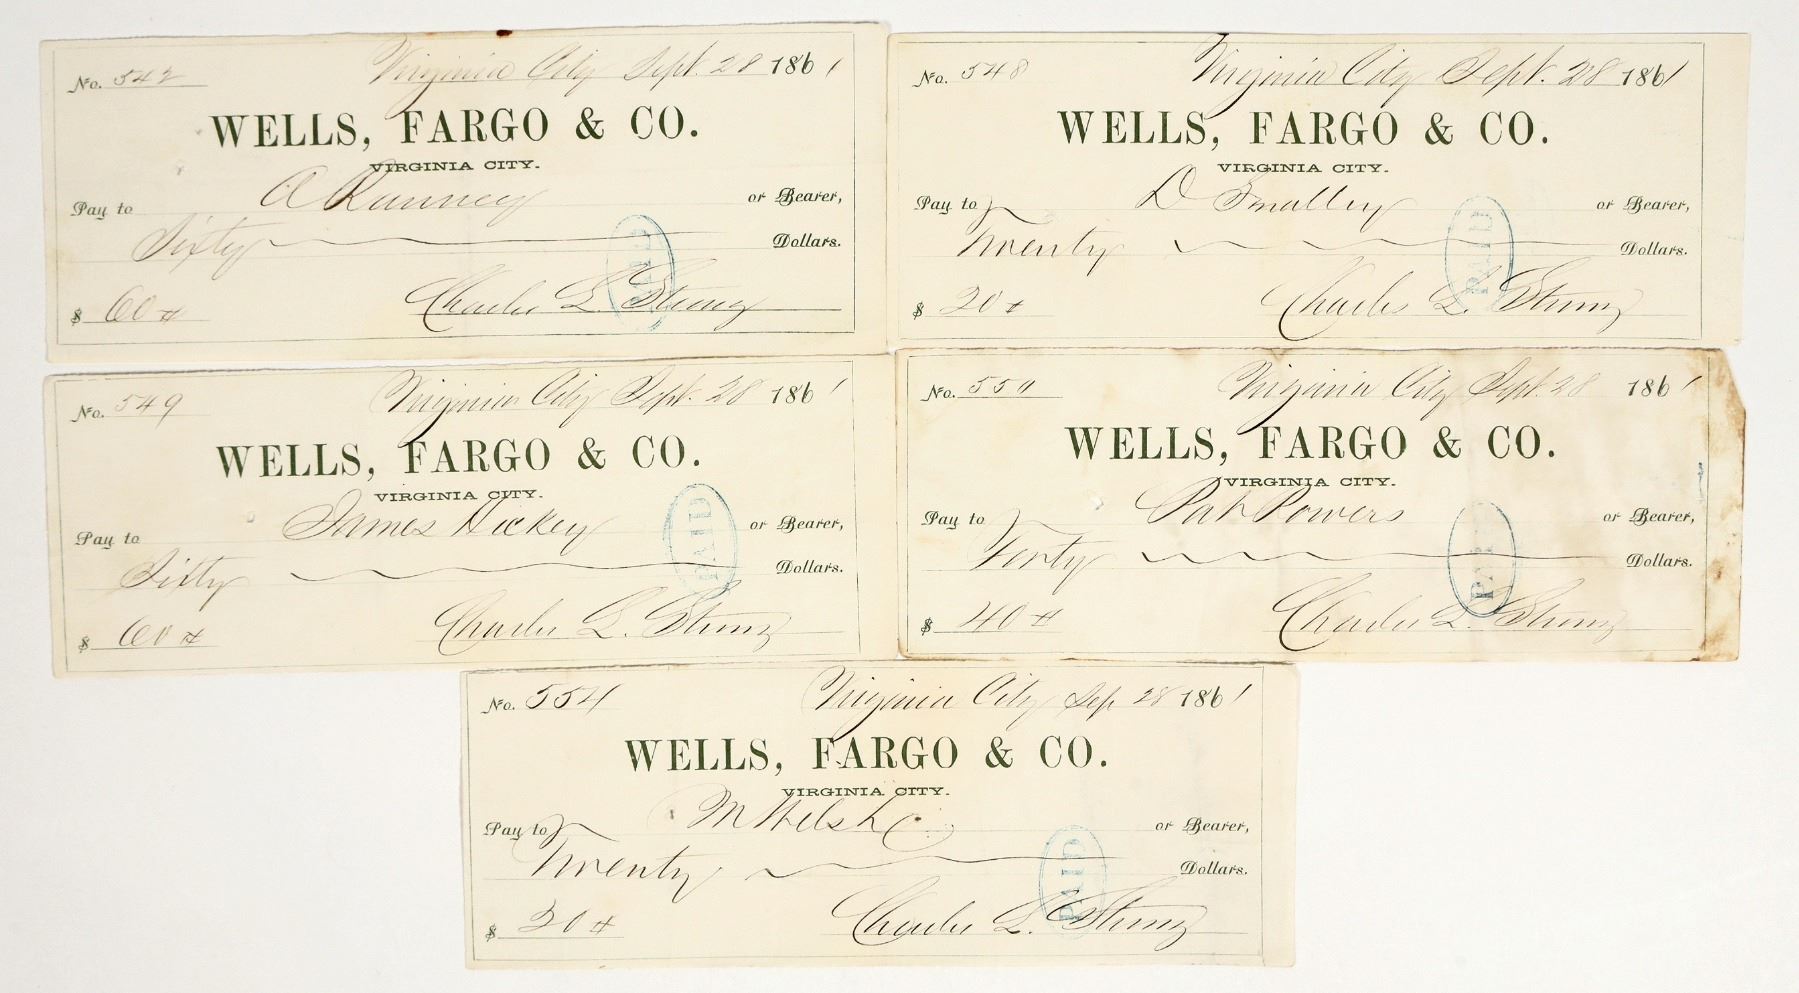 No. 542 Virginia City Sept. 28 1861
WELLS, FARGO & CO.
VIRGINIA CITY.
Pay to A Ranney or Bearer,
Sixty Dollars.
$ 60 Charles L. Strong
PAID
No. 548 Virginia City Sept. 28 1861
WELLS, FARGO & CO.
VIRGINIA CITY.
Pay to D Smalley or Bearer,
Twenty Dollars.
$ 20 Charles L. Strong
PAID
No. 549 Virginia City Sept. 28 1861
WELLS, FARGO & CO.
VIRGINIA CITY.
Pay to James Hickey or Bearer,
Sixty Dollars.
$ 60 Charles L. Strong
PAID
No. 550 Virginia City Sept. 28 1861
WELLS, FARGO & CO.
VIRGINIA CITY.
Pay to Pat Powers or Bearer,
Forty Dollars.
$ 40 Charles L. Strong
PAID
No. 554 Virginia City Sep 28 1861
WELLS, FARGO & CO.
VIRGINIA CITY.
Pay to M Welsh or Bearer,
Twenty Dollars.
$ 20 Charles L. Strong
PAID